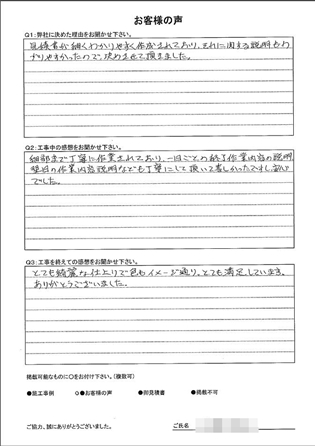 お客様の声
Q1:弊社に決めた理由をお聞かせ下さい。
見積書が細くわかりやすく作成されており、それに関する説明もわ
かりやすかったので、決めさせて頂きました。
Q2:工事中の感想をお聞かせ下さい。
細部まで丁寧に作業されており、一日ごとの終了作業内容の説明
翌日の作業内容説明なども丁寧にして頂いて
でした。
Q3:工事を終えての感想をお聞かせ下さい。
とても綺麗な仕上りで色もイメージ通り、とても満足しています。
ありがとうございました。
掲載可能なものに〇をお付け下さい。(複数可)
●施工事例 ●お客様の声 ●御見積書 ●掲載不可
ご協力、誠にありがとうございました。 ご氏名